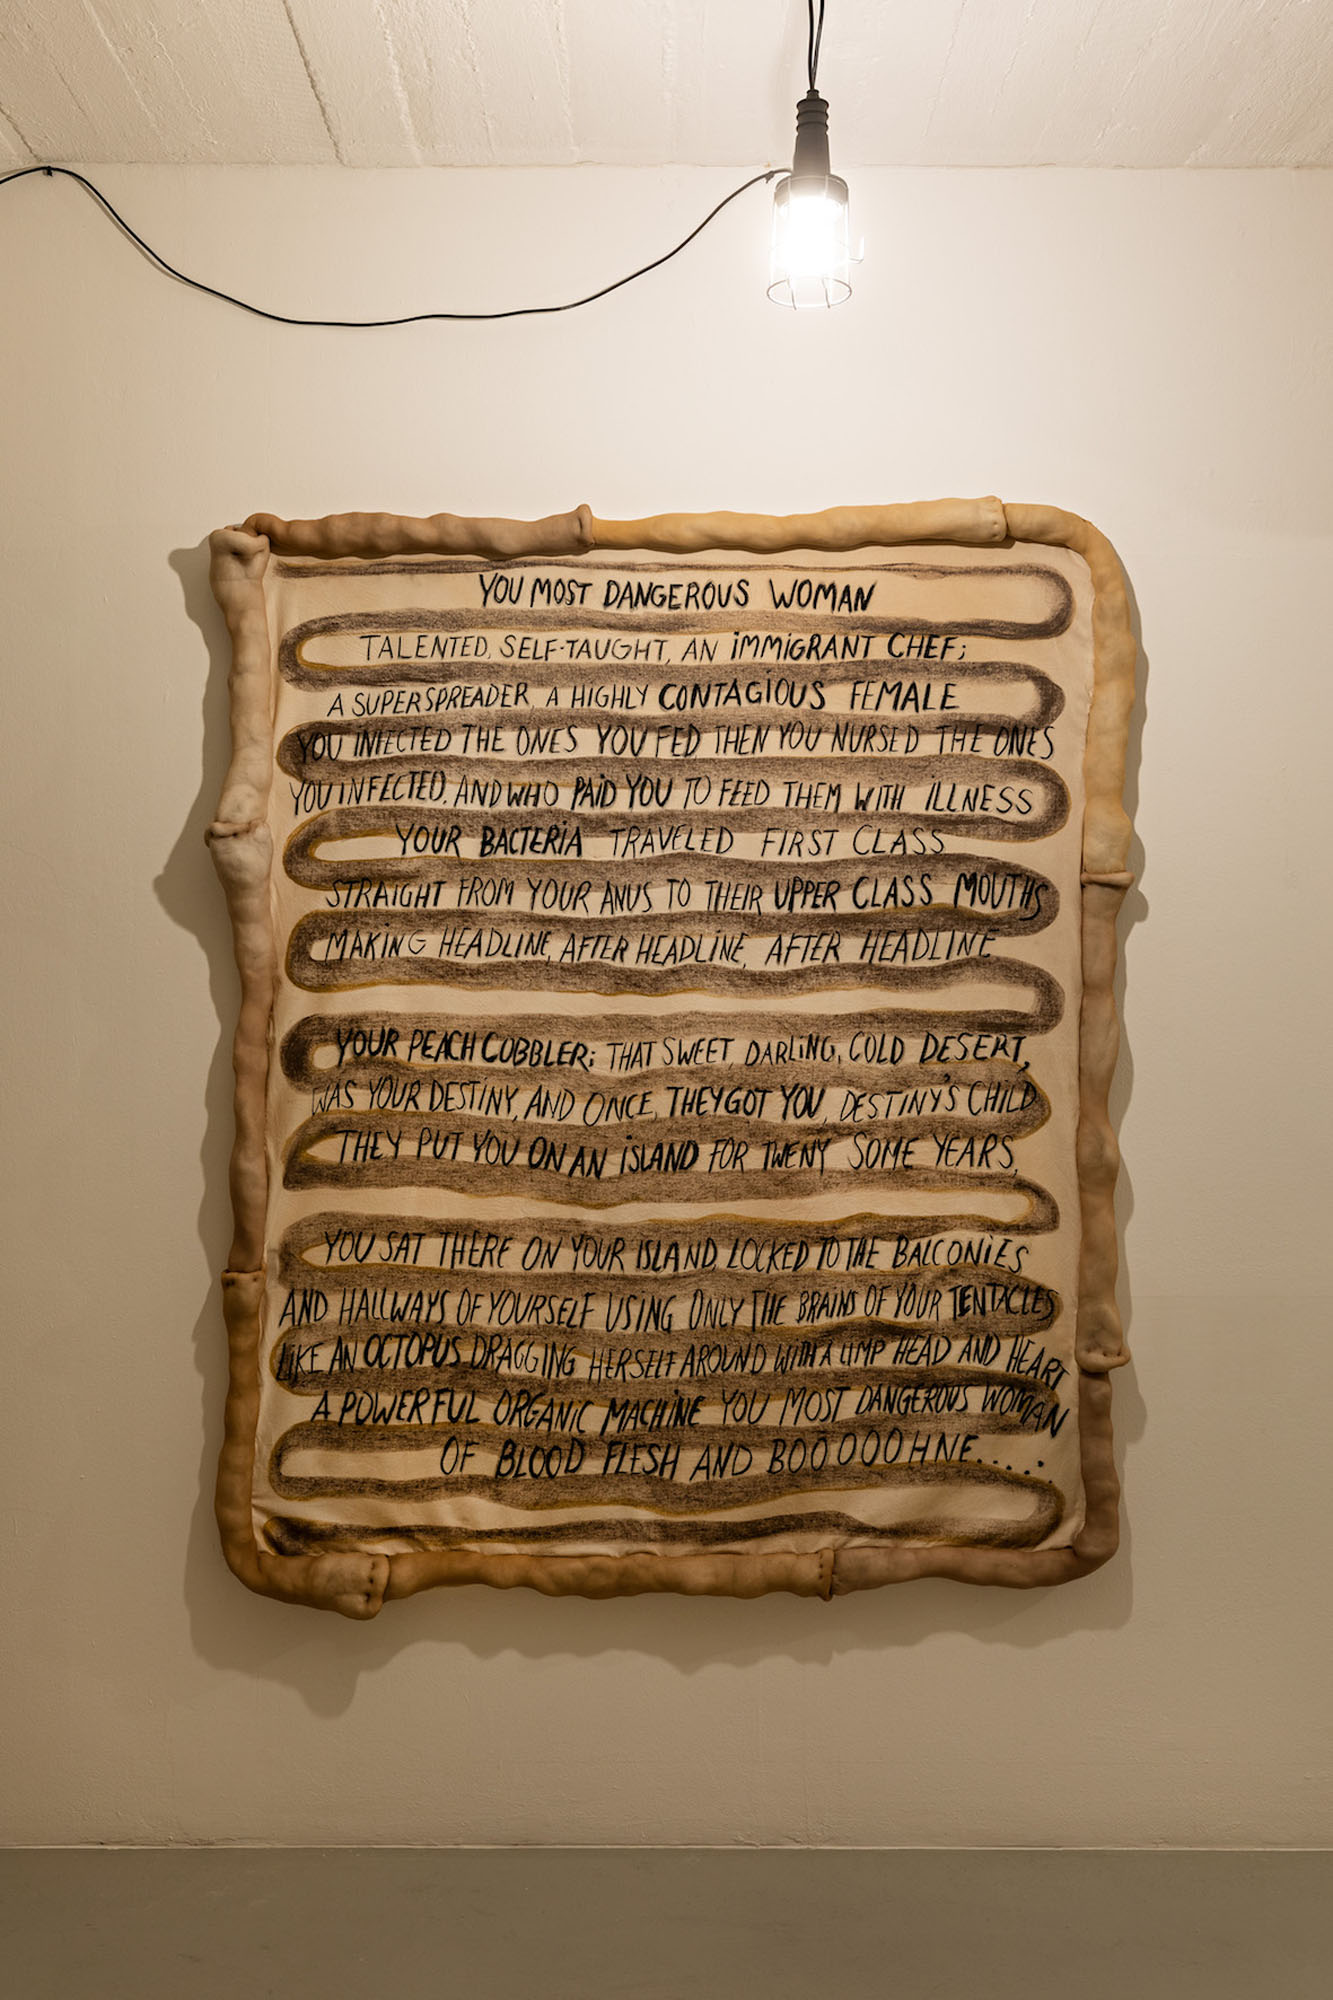 YOU MOST DANGEROUS WOMAN
TALENTED, SELF-TAUGHT, AN iMMiGRANT CHEF;
A SUPERSPREADER, A HIGHLY CONTAGiOUS FEMALE
YOU INFECTED THE ONES YOU FED THEN YOU NURSED THE ONES
YOU INFECTED. AND WHO PAiD YOU TO FEED THEM WiTH iLLNESS
YOUR BACTERiA TRAVELED FIRST CLASS
STRAIGHT FROM YOUR ANUS TO THEIR UPPER CLASS MOUTHS
MAKiNG HEADLINE, AFTER HEADLiNE, AFTER HEADLINE
YOUR PEACH COBBLER; THAT SWEET, DARLiNG, COLD DESERT,
WAS YOUR DESTiNY, AND ONCE, THEY GOT YOU, DESTiNY'S CHILD
THEY PUT YOU ON AN iSLAND FOR TWENY SOME YEARS,
YOU SAT THERE ON YOUR iSLAND, LOCKED TO THE BALCONiES
AND HALLWAYS OF YOURSELF USING ONLY THE BRAiNS OF YOUR TENTACLES
LiKE AN OCTOPUS DRAGGiNG HERSELF AROUND WITH A LIMP HEAD AND HEART
A POWERFUL ORGANiC MACHiNE YOU MOST DANGEROUS WOMAN
OF BLOOD FLESH AND BOOOOOHNE.....